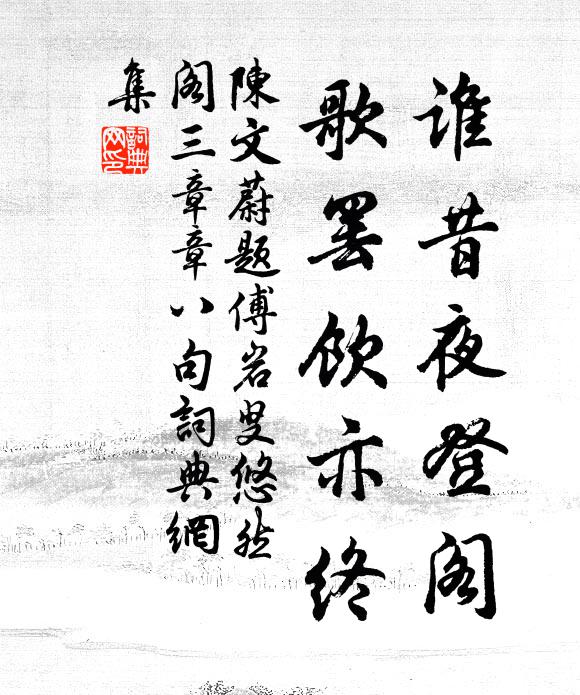 谁昔夜登阁
歌罢饮亦终
陳文蔚题傅岩叟悠然
阁三章章八句詞典網
集
詞典
网印